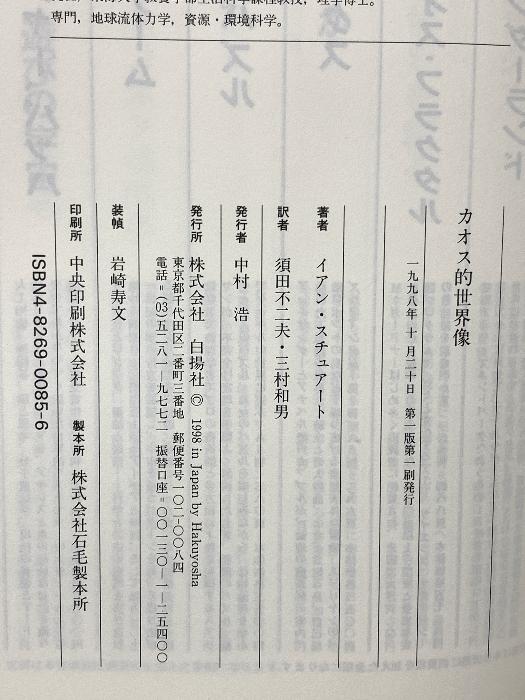 専門，地球流体力学，資源・環境科学。
カオス的世界像
一九九八年 十 月二十日　第一版第一刷発行
著者　イアン・スチュアート
訳者　須田不二夫・三村和男
発行者　中村　浩
発行所　株式会社　白揚社　© 1998 in Japan by Hakuyosha
東京都千代田区二番町三番地　郵便番号一〇二-〇〇八四
電話＝(03)五二八一―九七七二　振替口座＝〇〇一三〇―一―二五四〇〇
装幀　岩崎寿文
印刷所　中央印刷株式会社　製本所　株式会社石毛製本所
ISBN4-8269-0085-6